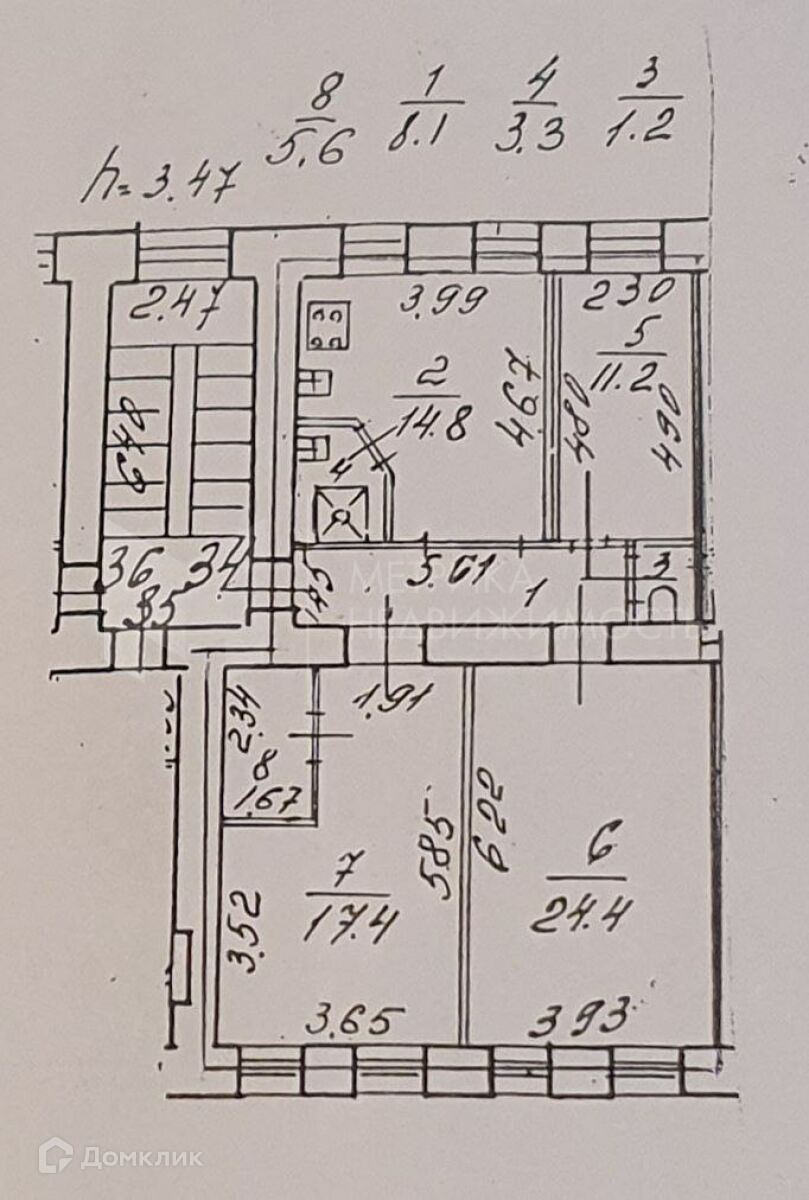 8 1 4 3
5.6 8.1 3.3 1.2
h=3.47
2.47 3.99 230
5
11.2
2
14.8
4.67
480
490
6.48
4
36 34
35
1.45
5.61
1
3
МЕТРИКА
НЕДВИЖИМОСТЬ
1.91
2.34
8
1.67
5.85
6.22
7
17.4
6
24.4
3.52
3.65
3.93
Домклик